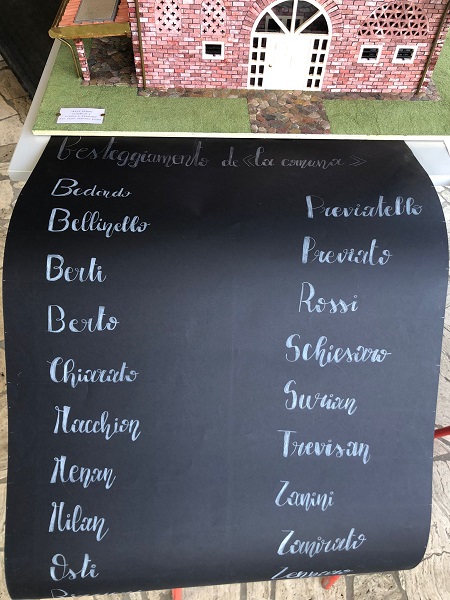 Festeggiamento de «La comuna»
Bedendo
Bellinello
Berti
Berto
Chiarato
Macchion
Menan
Milan
Osti
Previatello
Previato
Rossi
Schiesaro
Surian
Trevisan
Zanini
Zanirato